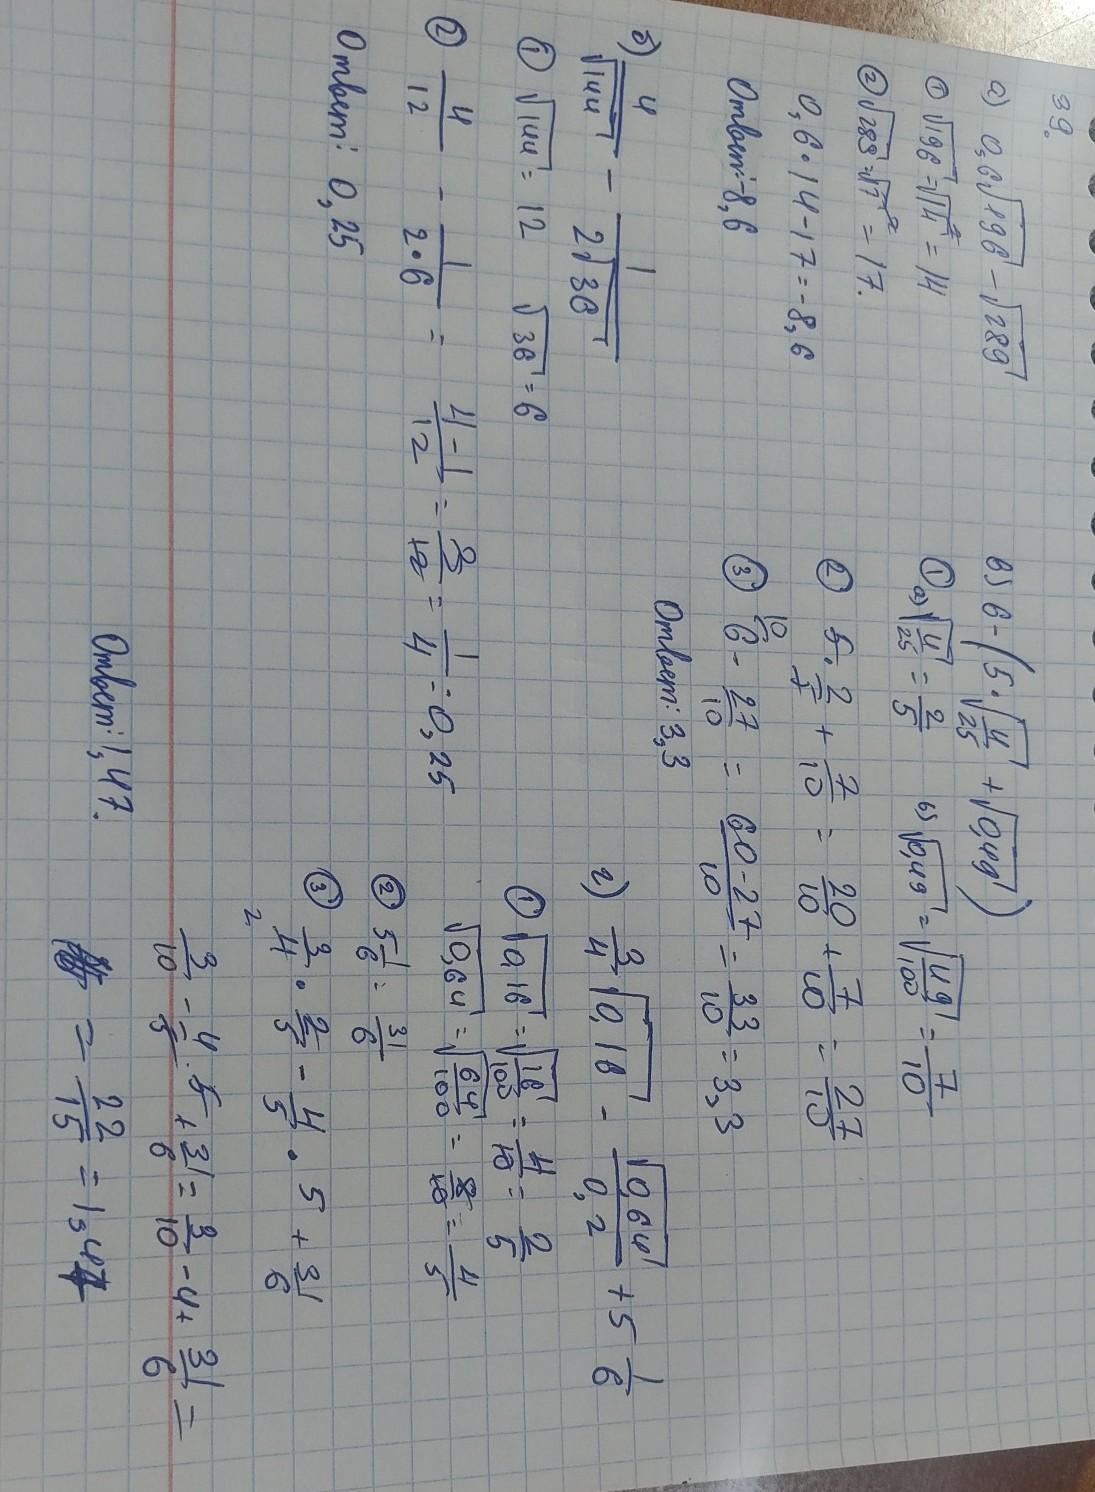 39.
а) 0,6√196 - √289
① √196 = √14² = 14
② √289 = √17² = 17.
0,6·14-17=-8,6
Ответ:-8,6
б) 4/√144 - 1/(2√36)
① √144 = 12 √36 = 6
② 4/12 - 1/(2·6) = (4-1)/12 = 3/12 = 1/4 = 0,25
Ответ: 0,25
в) 6-(5·√(4/25) + √0,49)
① а) √(4/25) = 2/5 б) √0,49 = √(49/100) = 7/10
② 5·2/5 + 7/10 = 20/10 + 7/10 = 27/10
③ 6 - 27/10 = (60-27)/10 = 33/10 = 3,3
Ответ: 3,3
г) 3/4 √0,16 - √0,64/0,2 + 5 1/6
① √0,16 = √(16/100) = 4/10 = 2/5
√0,64 = √(64/100) = 8/10 = 4/5
② 5 1/6 = 31/6
③ 3/4 · 2/5 - 4/5 · 5 + 31/6
3/10 - 4/5 · 5 + 31/6 = 3/10 - 4 + 31/6 =
= 22/15 = 1,47
Ответ: 1,47.